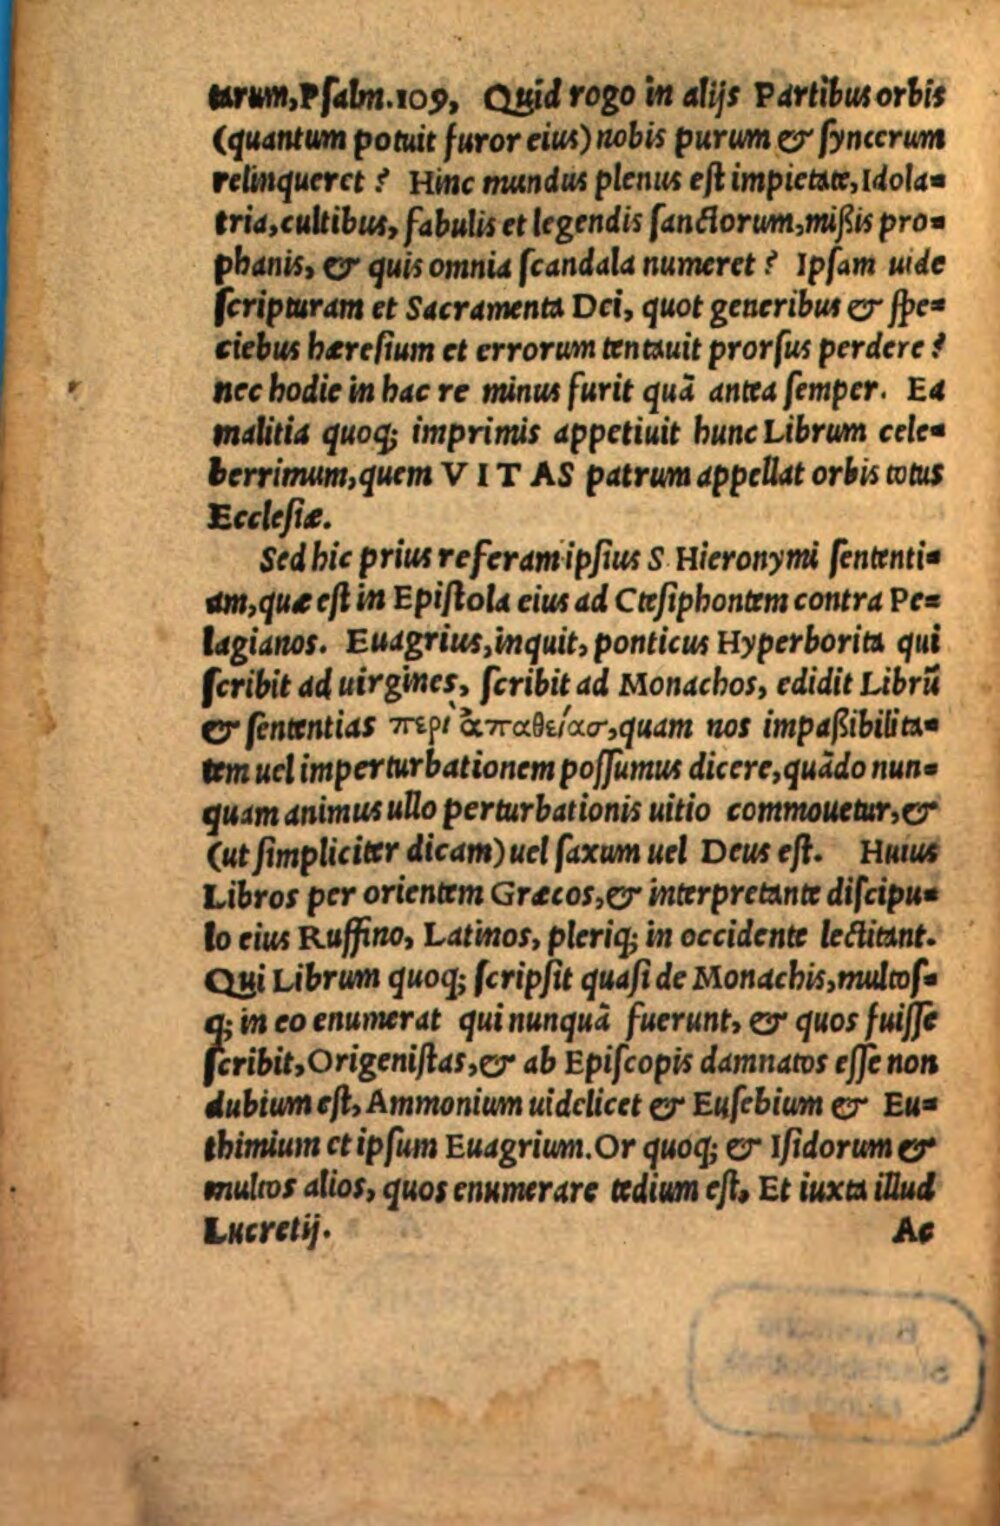 turum, Psalm.109, Quid rogo in alijs Partibus orbis
(quantum potuit furor eius) nobis purum & syncerum
relinqueret? Hinc mundus plenus est impietate, Idola=
tria, cultibus, fabulis et legendis sanctorum, mißis pro=
phanis, & quis omnia scandala numeret? Ipsam uide
scripturam et Sacramenta Dei, quot generibus & spe=
ciebus hæresium et errorum tentauit prorsus perdere?
nec hodie in hac re minus furit quā antea semper. Ea
malitia quoq; imprimis appetiuit hunc Librum cele=
berrimum, quem VITAS patrum appellat orbis totus
Ecclesiæ.
Sed hic prius referam ipsius S. Hieronymi sententi=
am, quæ est in Epistola eius ad Ctesiphontem contra Pe=
lagianos. Euagrius, inquit, ponticus Hyperborita qui
scribit ad uirgines, scribit ad Monachos, edidit Librū
& sententias περὶ ἀπαθείασ, quam nos impaßibilita=
tem uel imperturbationem possumus dicere, quādo nun=
quam animus ullo perturbationis uitio commouetur, &
(ut simpliciter dicam) uel saxum uel Deus est. Huius
Libros per orientem Græcos, & interpretante discipu=
lo eius Ruffino, Latinos, pleriq; in occidente lectitant.
Qui Librum quoq; scripsit quasi de Monachis, multos=
q; in eo enumerat qui nunquā fuerunt, & quos fuisse
scribit, Origenistas, & ab Episcopis damnatos esse non
dubium est, Ammonium uidelicet & Eusebium & Eu=
thimium et ipsum Euagrium. Or quoq; & Isidorum &
multos alios, quos enumerare tedium est, Et iuxta illud
Lucretij. Ac